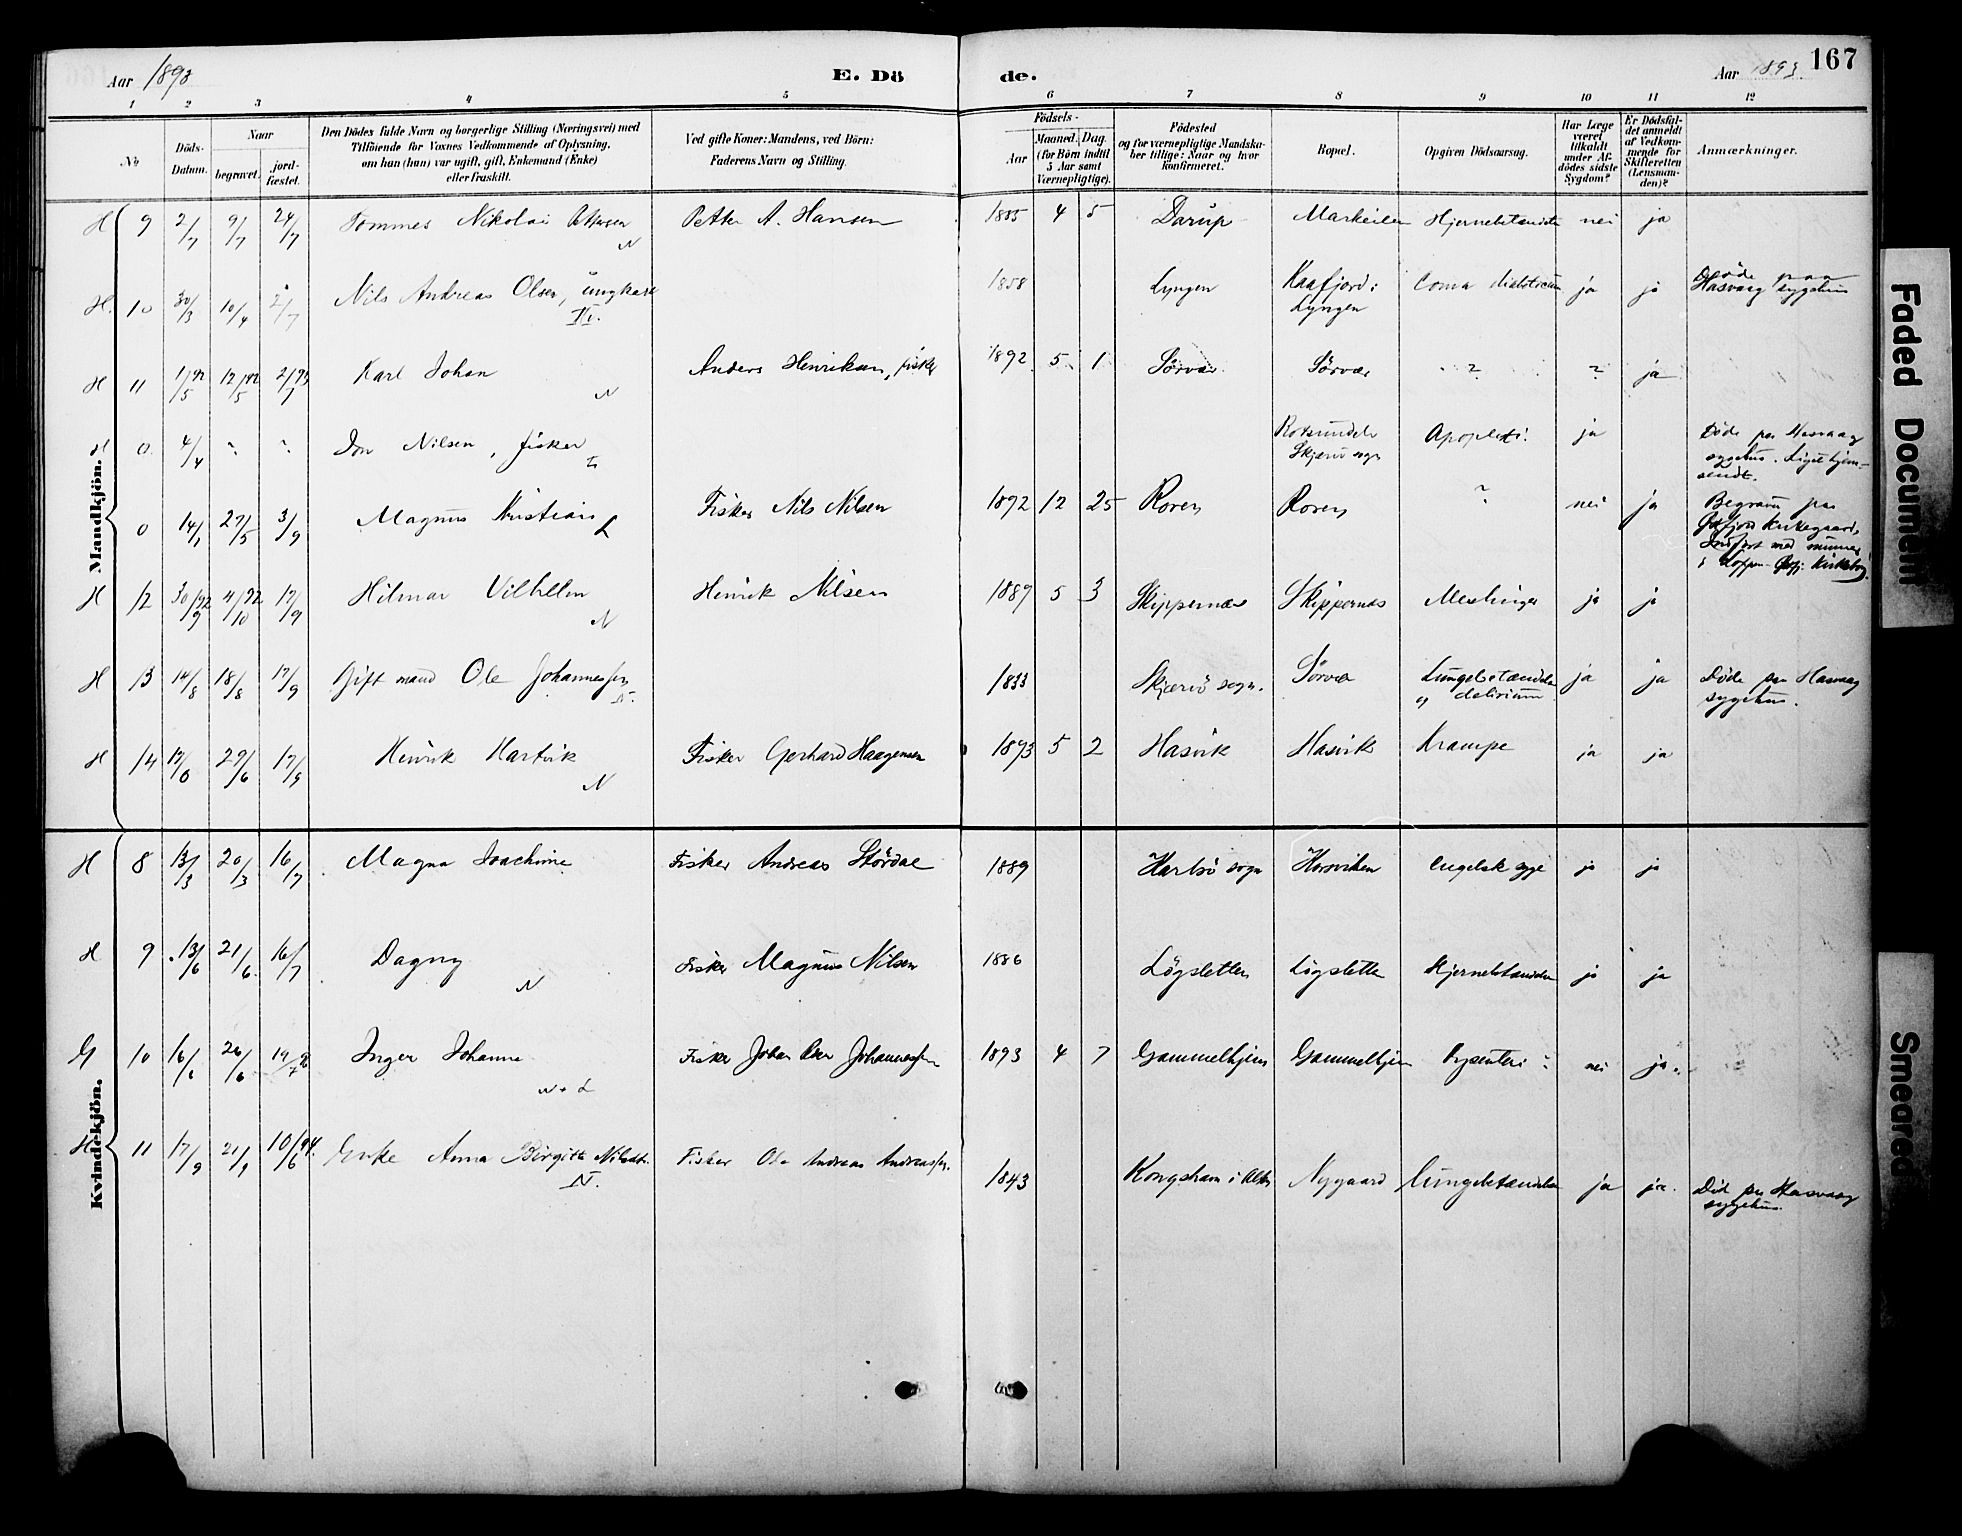 Aar 1893
E. Dö
de.
Aar 1893.
167
1 2 3 4 5 6 7 8 9 10 11 12
No
Döds-
Datum.
Naar
begravet.
jord-
fæstet.
Den Dödes fulde Navn og borgerlige Stilling (Næringsvei) med
Tilföiende for Voxnes Vedkommende af Oplysning,
om han (hun) var ugift, gift, Enkemand (Enke)
eller fraskilt.
Ved gifte Koner: Mandens, ved Börn:
Faderens Navn og Stilling.
Födsels-
Aar
Maaned. Dag.
(for Börn indtil
5 Aar samt
Værnepligtige).
Födested
og for værnepligtige Mandska-
ber tillige: Naar og hvor
konfirmeret.
Bopæl.
Opgiven Dödsaarsag.
Har Læge
været
tilkaldt
under Af-
dödes sidste
Sygdom?
Er Dödsfal-
det anmeldt
af Vedkom-
mende for
Skifteretten
(Lensman-
den)?
Anmærkninger.
Mandkjön.
H 9 2/7 9/7 24/7 Tommes Nikolai Pettersen N Petter A. Hansen 1885 4 5 Darup Markeilen Hjernebetændelse nei ja
H. 10 30/3 10/4 2/7 Nils Andreas Olsen, ungkarl 1858 Lyngen Kaafjord i ja ja Döde paa
Lyngen Hasvaag sygehus
H 11 1/92/5 12/92/5 2/93/7 Karl Johan N Anders Henriksen, fisker 1892 5 1 Sörvær Sörvær ? ? ja
H 0 4/4 ~ ~ Jon Nilsen, fisker Rotsundelv Apoplexi. ja Döde paa Hasvaag
Skjervö sogn sygehus. Liget hjem-
sendt.
0 14/1 27/5 3/9 Magnus Kristian L Fisker Nils Nilsen 1892 12 25 ? nei ja Begravet paa
Kirkegaard,
H 12 30/92/9 4/92/10 17/9 Hilmar Vilhelm N Henrik Nilsen 1889 5 3 Skippernæs Skippernæs Meslinger ja ja
H 13 14/8 18/8 17/9 Gift mand Ole Johannessen N. 1833 Skjervö sogn. Sörvær Lungebetændelse ja ja Döde paa Hasvaag
og delirium sygehus.
H 14 27/6 17/9 Henrik Hartvik N Fisker Gerhard Haagensen 1893 5 2 Hasvik Hasvik Krampe ja ja
Kvindekjön.
H 8 13/3 20/3 16/7 Magna Joachime Fisker Andreas Stördal 1889 Karlsö sogn Engelsk syge ja ja
H 9 13/6 21/6 16/7 Dagny N Fisker Magnus Nilsen 1886 Lögsletten Lögsletten Hjernebetændelse ja ja
G 10 16/6 26/6 Inger Johanne N + L Fisker Johan Johannessen 1893 4 7 Gammelhjem Gammelhjem Dysenteri nei ja
H 11 17/9 21/9 10/94/6 Enke Anna Birgitte Nilsdt. N. Fisker Ole Andreas Andreassen. 1843 Kongshavn i Alten Nygaard Lungebetændelse ja ja. Död paa Hasvaag
sygehus.
Faded Document
Smeared